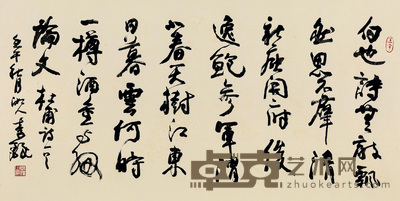 白也詩無敵飄
然思不群清
新庾開府俊
逸鮑參軍渭
北春天樹江東
日暮雲何時
一樽酒重與細
論文 杜甫詩一首
壬午秋月 李鐸